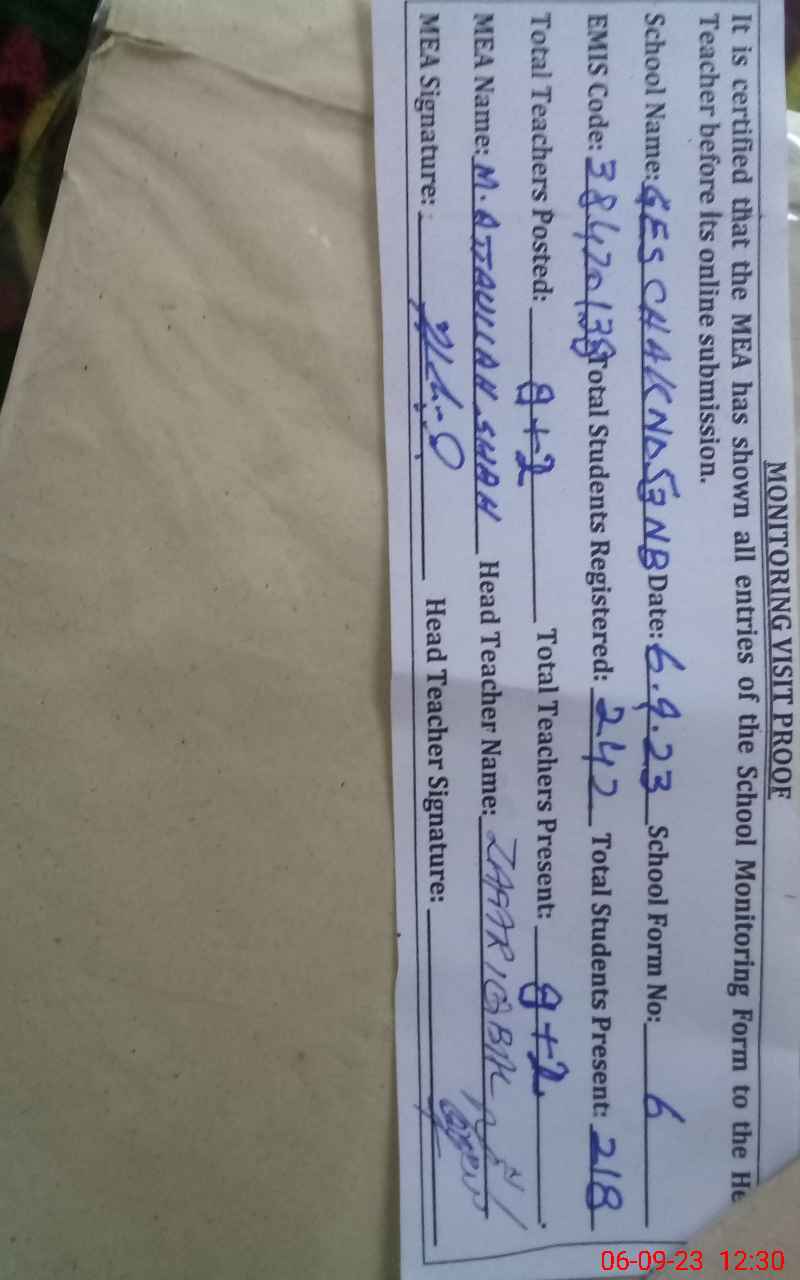 MONITORING VISIT PROOF
It is certified that the MEA has shown all entries of the School Monitoring Form to the He
Teacher before its online submission.
School Name: GES CHAK NO. 53 NB Date: 6.9.23 School Form No: 6
EMIS Code: 38420138 Total Students Registered: 242 Total Students Present: 218
Total Teachers Posted: 8+2 Total Teachers Present: 8+2
MEA Name: M. ATTAULLAH SHAH Head Teacher Name: ZAFAR IQBAL
MEA Signature: Head Teacher Signature:
06-09-23 12:30